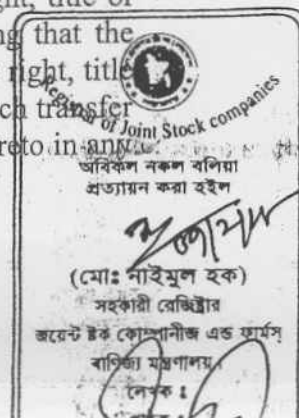 ght, title or
ng that the
right, title
ch transfer
reto in any
Registrar of Joint Stock companies
অবিকল নকল বলিয়া
প্রত্যায়ন করা হইল
(মোঃ নাইমুল হক)
সহকারী রেজিষ্ট্রার
জয়েন্ট ষ্টক কোম্পানীজ এন্ড ফার্মস্
বাণিজ্য মন্ত্রণালয়।